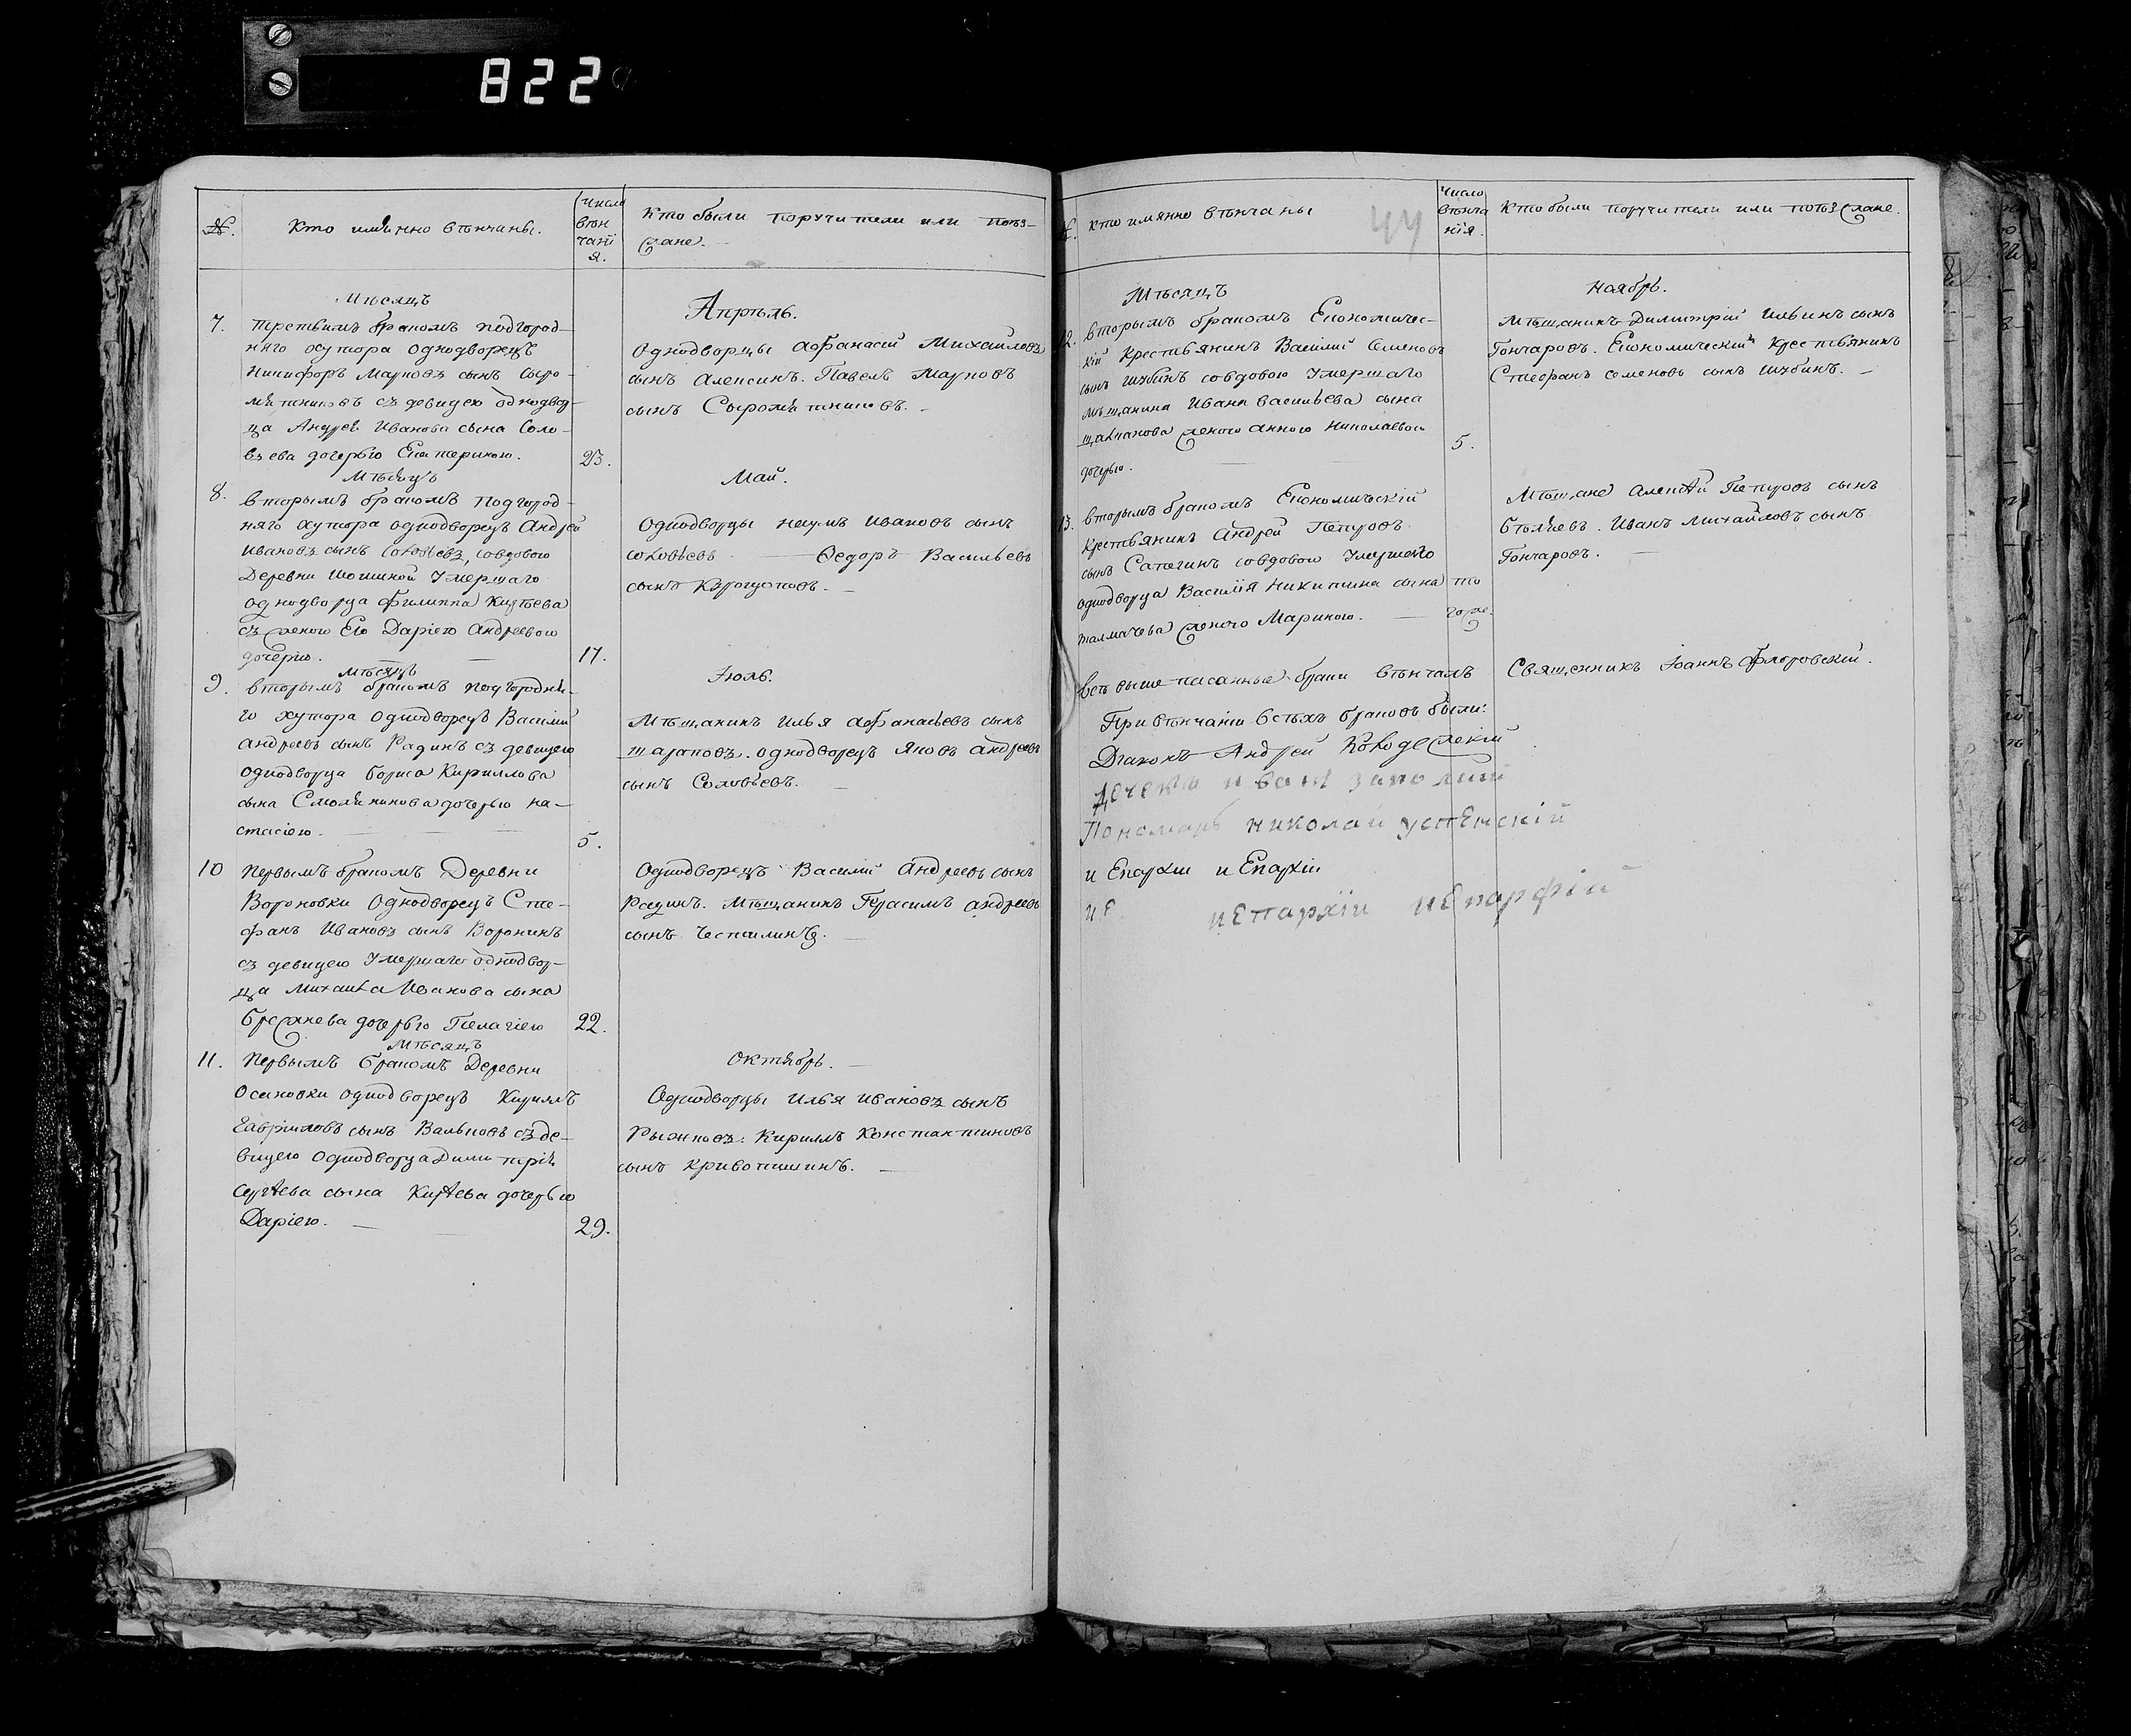 822
№.
Кто имянно вѣнчаны.
Число
вѣн
чанї
я.
Кто были поручители или поѣз-
жане.
Мѣсяцъ
Апрѣль.
7. третьимъ бракомъ подгород-
няго хутора однодворецъ
Никифоръ Марковъ сынъ Сыро-
мятниковъ съ девицею однодвор-
ца Андрея Иванова сына Соло-
вьева дочерью Екатериною.
23.
Однодворцы Афанасій Михайловъ
сынъ Алехинъ. Павелъ Марковъ
сынъ Сыромятниковъ.
Мѣсяцъ
Май.
8. вторымъ бракомъ Подгород-
няго хутора однодворецъ Андрей
Ивановъ сынъ Соловьевъ, совдовою
Деревни умершаго
однодворца Филиппа Киреева
съ женою Его Даріею Андреевою
дочерью.
17.
Однодворцы Наумъ Ивановъ сынъ
Соловьевъ Федоръ Васильевъ
сынъ
Мѣсяцъ
Іюль.
9. вторымъ бракомъ подгородня-
го хутора Однодворецъ Василій
Андреевъ сынъ Радинъ съ девицею
однодворца Бориса Кириллова
сына дочерью На-
стасіею.
5.
Мѣщанинъ Илья Афанасьевъ сынъ
Шараповъ. однодворецъ Яковъ Андреевъ
сынъ Соловьевъ.
10 Первымъ бракомъ Деревни
Вороновки Однодворецъ Сте-
фанъ Ивановъ сынъ Воронинъ
съ девицею Умершаго однодвор-
ца Михаила Иванова сына
Брежнева дочерью Пелагіею
22.
Однодворецъ Василій Андреевъ сынъ
Радинъ. Мѣщанинъ Герасимъ Андреевъ
сынъ
Мѣсяцъ
Октябрь.
11. Первымъ бракомъ Деревни
Осиновки однодворецъ Кирилъ
Гавриловъ сынъ съ де-
вицею Однодворца Димитрія
Сергѣева сына Кирѣева дочерью
Даріею.
29.
Однодворцы Илья Ивановъ сынъ
Рыжковъ. Кирилъ Константиновъ
сынъ
44
№.
Кто имянно вѣнчаны
Число
вѣнча
нїя.
Кто были поручители или поѣзжане.
Мѣсяцъ
Ноябрь.
12. вторымъ бракомъ Економичес-
кій Крестьянинъ Василій Семеновъ
сынъ Шубинъ совдовою Умершаго
мѣщанина Ивана Васильева сына
женою Анною Николаевою
дочерью.
5.
Мѣщанинъ Димитрій Ильинъ сынъ
Гончаровъ. Економическій Крестьянинъ
Стефанъ Семеновъ сынъ Шубинъ.
13. вторымъ бракомъ Економическій
Крестьянинъ Андрей Петровъ
сынъ Сапегинъ совдовою Умершаго
однодворца Василія Никитина сына
Толмачева женою Мариною.
то
гоже.
Мѣщане Алексѣй Петровъ сынъ
Иванъ Михайловъ сынъ
Гончаровъ.
Всѣ выше писанные браки вѣнчалъ
Священникъ Іоаннъ Флоровскій.
При вѣнчаніи всѣхъ браковъ были:
Діаконъ Андрей
Дечекъ Иванъ
Пономарь Николай Успенскій
и Епархіи и Епархіи
и Е
и Епархїи и Епарфій